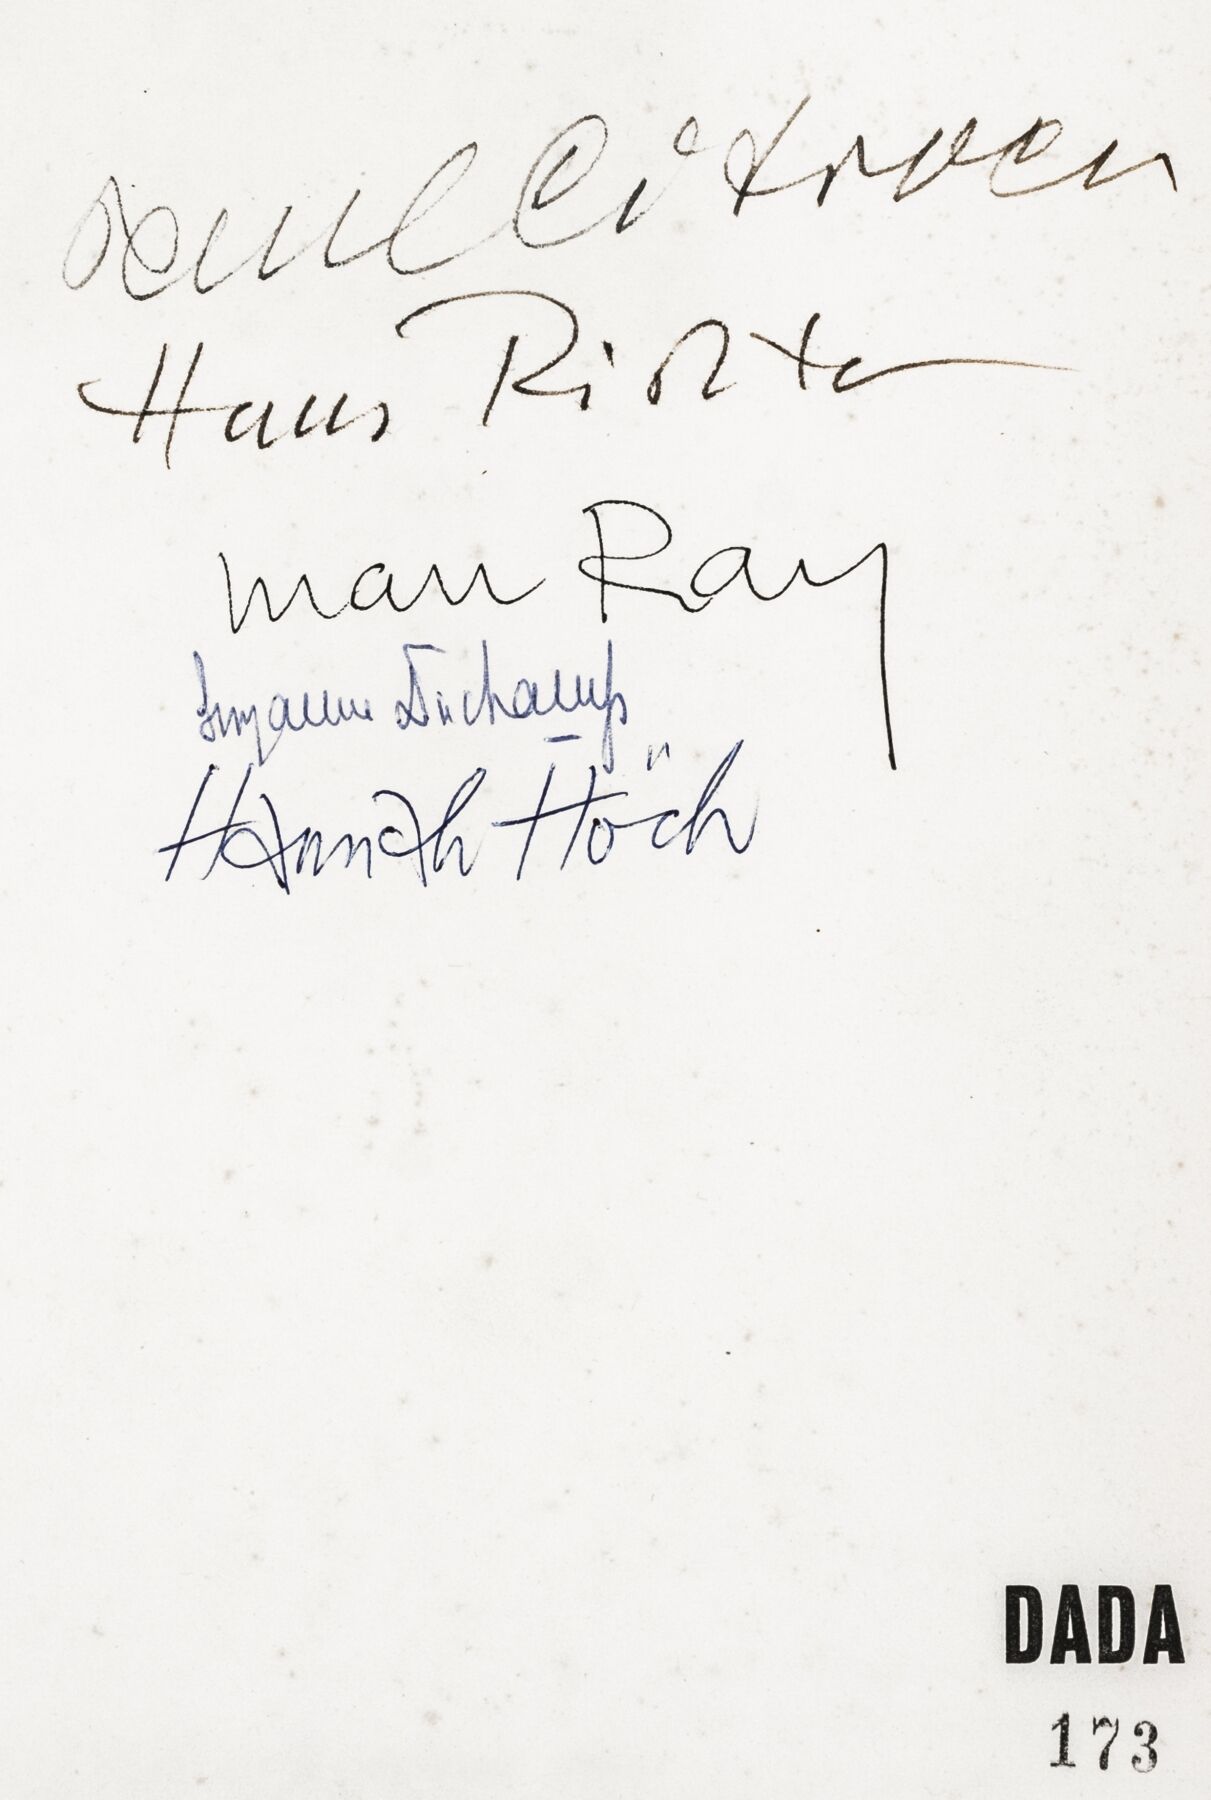 Paul Citroen
Hans Richter
man Ray
Suzanne Duchamp
Hannah Höch
DADA
173